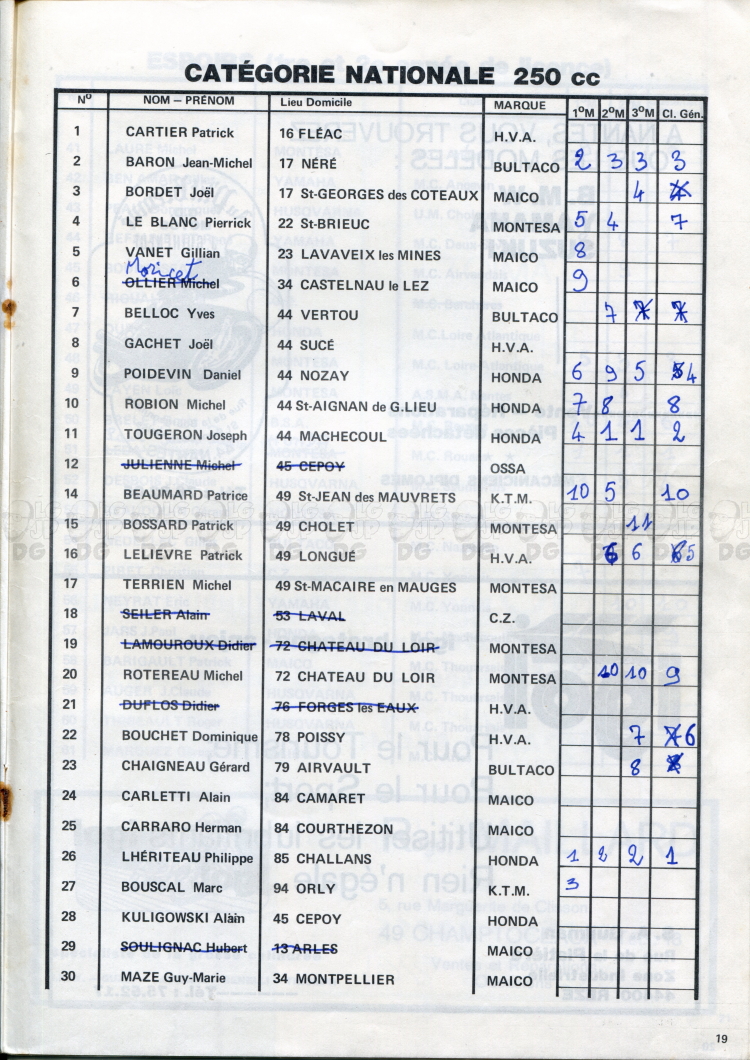 CATÉGORIE NATIONALE 250 cc
Nº NOM – PRÉNOM Lieu Domicile MARQUE 1ºM 2ºM 3ºM Cl. Gén.
1 CARTIER Patrick 16 FLÉAC H.V.A.
2 BARON Jean-Michel 17 NÉRÉ BULTACO 2 3 3 3
3 BORDET Joël 17 St-GEORGES des COTEAUX MAICO 4
4 LE BLANC Pierrick 22 St-BRIEUC MONTESA 5 4 7
5 VANET Gillian 23 LAVAVEIX les MINES MAICO 8
Moricet
6 OLLIER Michel 34 CASTELNAU le LEZ MAICO 9
7 BELLOC Yves 44 VERTOU BULTACO 7
8 GACHET Joël 44 SUCÉ H.V.A.
9 POIDEVIN Daniel 44 NOZAY HONDA 6 9 5 4
10 ROBION Michel 44 St-AIGNAN de G.LIEU HONDA 7 8 8
11 TOUGERON Joseph 44 MACHECOUL HONDA 4 1 1 2
12 JULIENNE Michel 45 CEPOY OSSA
14 BEAUMARD Patrice 49 St-JEAN des MAUVRETS K.T.M. 10 5 10
15 BOSSARD Patrick 49 CHOLET MONTESA 11
16 LELIÈVRE Patrick 49 LONGUÉ H.V.A. 6 6 5
17 TERRIEN Michel 49 St-MACAIRE en MAUGES MONTESA
18 SEILER Alain 53 LAVAL C.Z.
19 LAMOUROUX Didier 72 CHATEAU DU LOIR MONTESA
20 ROTEREAU Michel 72 CHATEAU DU LOIR MONTESA 10 10 9
21 DUFLOS Didier 76 FORGES les EAUX H.V.A.
22 BOUCHET Dominique 78 POISSY H.V.A. 7 6
23 CHAIGNEAU Gérard 79 AIRVAULT BULTACO 8
24 CARLETTI Alain 84 CAMARET MAICO
25 CARRARO Herman 84 COURTHEZON MAICO
26 LHÉRITEAU Philippe 85 CHALLANS HONDA 1 2 2 1
27 BOUSCAL Marc 94 ORLY K.T.M. 3
28 KULIGOWSKI Alain 45 CEPOY HONDA
29 SOULIGNAC Hubert 13 ARLES MAICO
30 MAZE Guy-Marie 34 MONTPELLIER MAICO
19